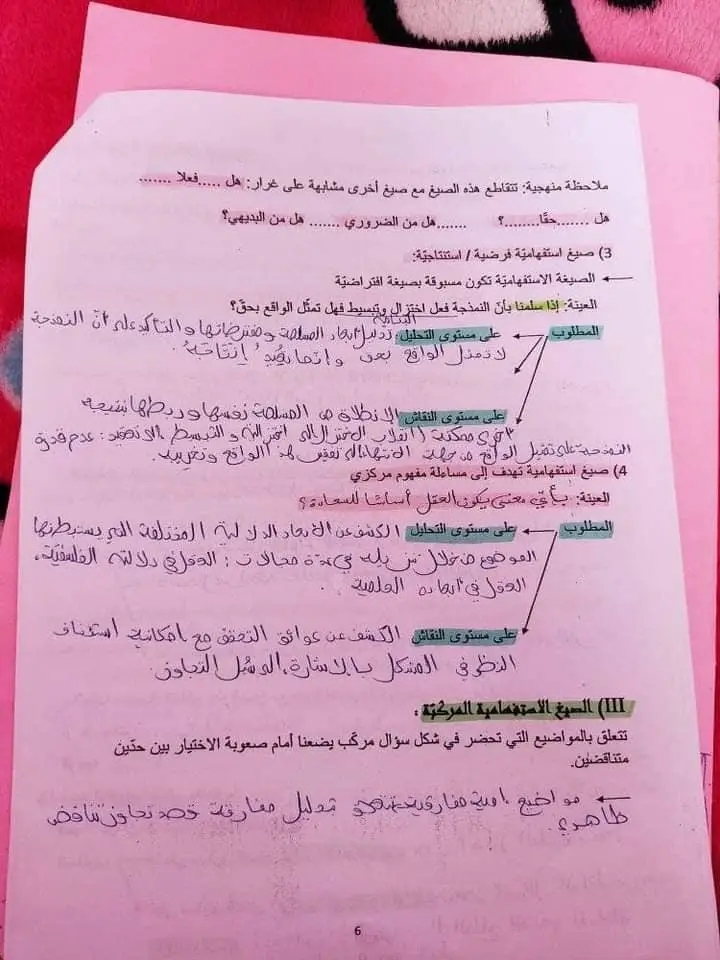 ملاحظة منهجية: تتقاطع هذه الصيغ مع صيغ أخرى مشابهة على غرار: هل .....فعلا .......
هل .......حقّا........؟ .......هل من الضروري ....... هل من البديهي؟
3) صيغ استفهاميّة فرضية / استنتاجيّة:
الصيغة الاستفهاميّة تكون مسبوقة بصيغة افتراضيّة
العينة: إذا سلمنا بأنّ النمذجة فعل اختزال وتبسيط فهل تمثّل الواقع بحقّ؟
المطلوب على مستوى التحليل: تحليل أبعاد المسلمة ومفترضاتها والتأكيد على أنّ النمذجة
لا تمثل الواقع بحق وإنما تعيد إنتاجه.
على مستوى النقاش الانطلاق من المسلمة نفسها وربطها بنتيجة
أخرى ممكنة (انقلاب الاختزال إلى و التبسيط إلى تعقيد: عدم قدرة
النمذجة على تمثيل الواقع من جهة الواقع وتغريبه.
4) صيغ استفهامية تهدف إلى مساءلة مفهوم مركزي
العينة: بأيّ معنى يكون العقل أساسًا للسعادة؟
المطلوب على مستوى التحليل الكشف عن الأبعاد الدلالية المختلفة التي يستبطنها
الموضوع من خلال في عدة مجالات: العقل في دلالته الفلسفيّة،
العقل في أبعاده العلمية.
على مستوى النقاش الكشف عن عوائق التحقق مع إمكانية استئناف
النظر في المشكل بالاشارة، لسُبُل التجاوز.
III) الصيغ الاستفهامية المركبّة :
تتعلق بالمواضيع التي تحضر في شكل سؤال مركّب يضعنا أمام صعوبة الاختيار بين حدّين
متناقضين.
مواضيع مفارقية تحليل مفارقة قصد تجاوز تناقض
ظاهري.
6